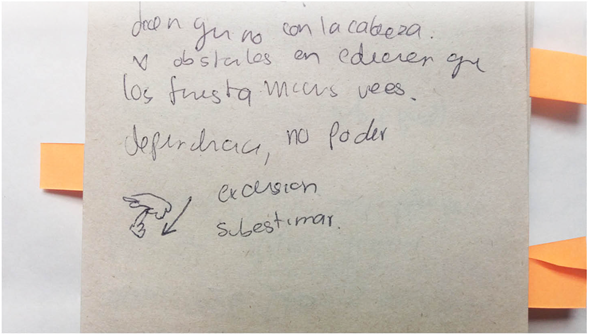 dicen que no con la cabeza.
obstaculos en educacion que
los frusta muchas veces.
dependencia, no poder
exclusion
subestimar.